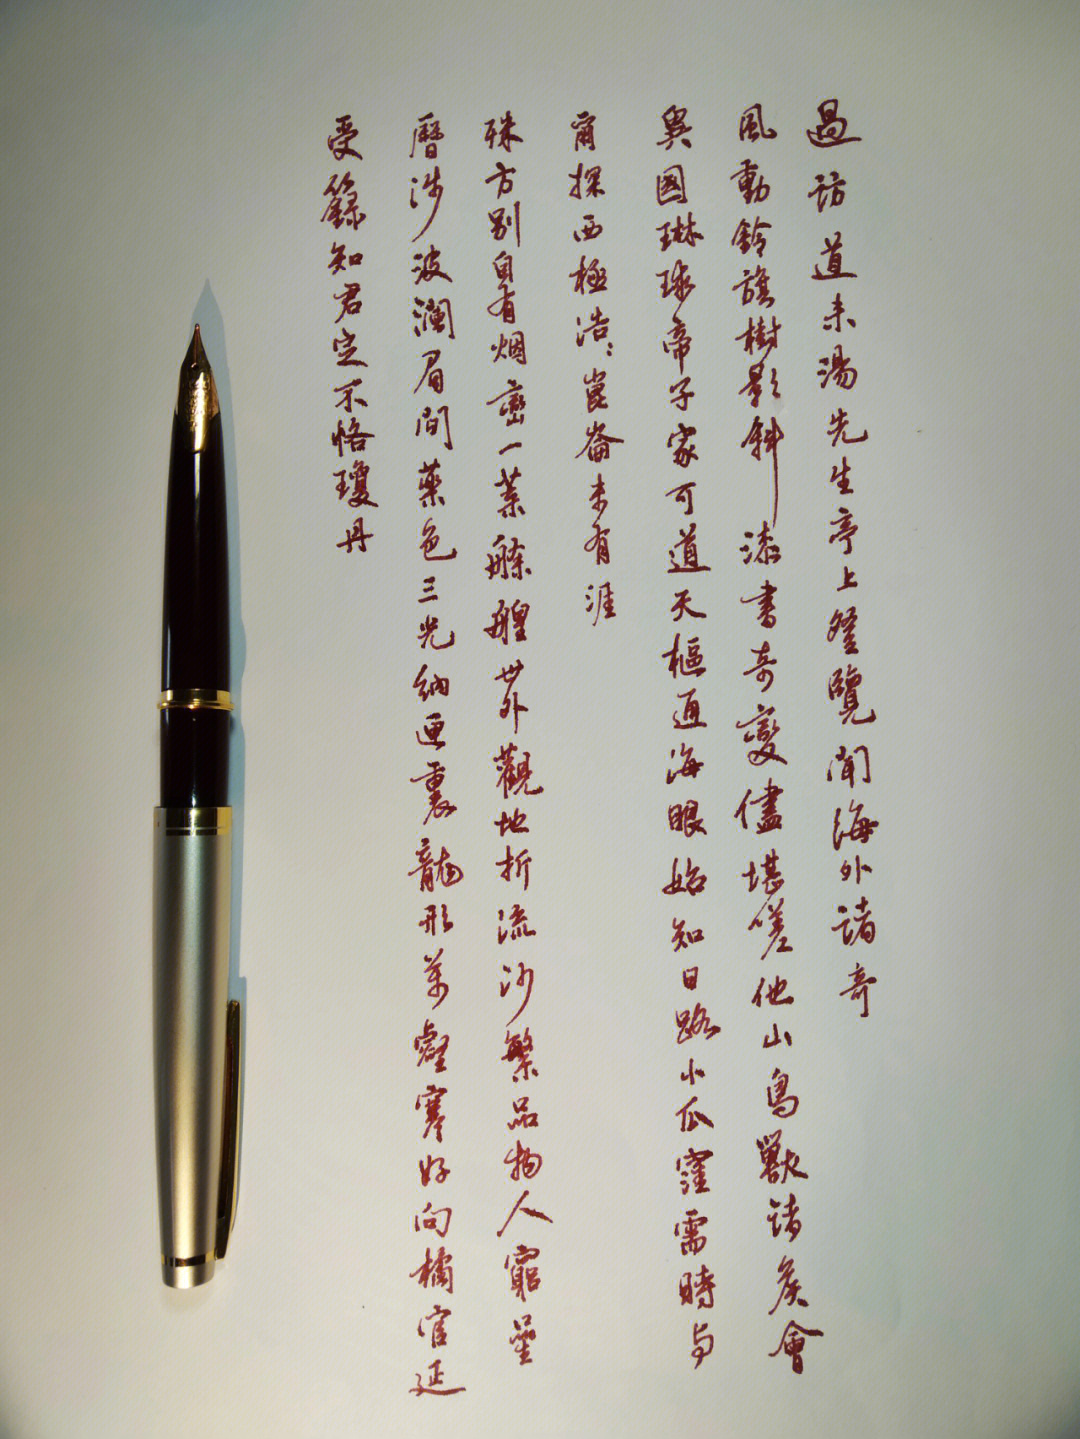 過訪道未湯先生亭上登覽聞海外諸奇
風動鈴旗樹影斜漆書奇變儘堪嗟他山鳥獸諸侯會
異國琳球帝子家可道天樞通海眼始知日路小瓜窪需時与
爾探西極浩:崑崙未有涯
殊方別自有烟巒一葉艅艎世外觀地折流沙繁品物人窺星
曆涉波瀾眉間藥色三光納匣裏龍形萬壑寒好向橘官延
受籙知君定不悋瓊丹